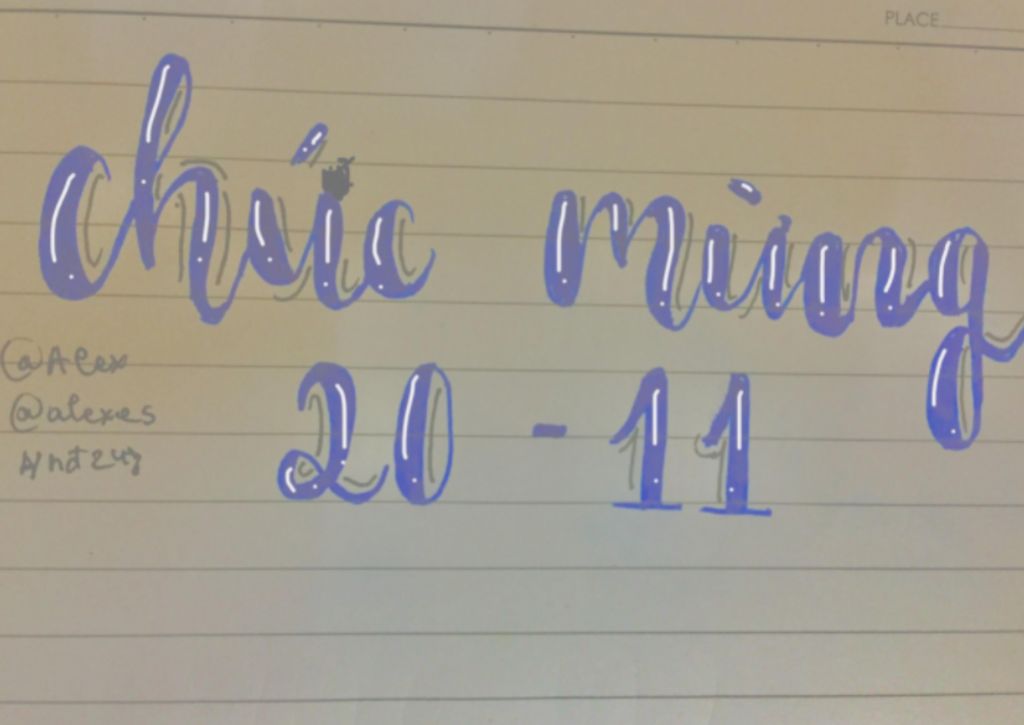 PLACE
chúc mừng
20 - 11
@Alex
@alexes